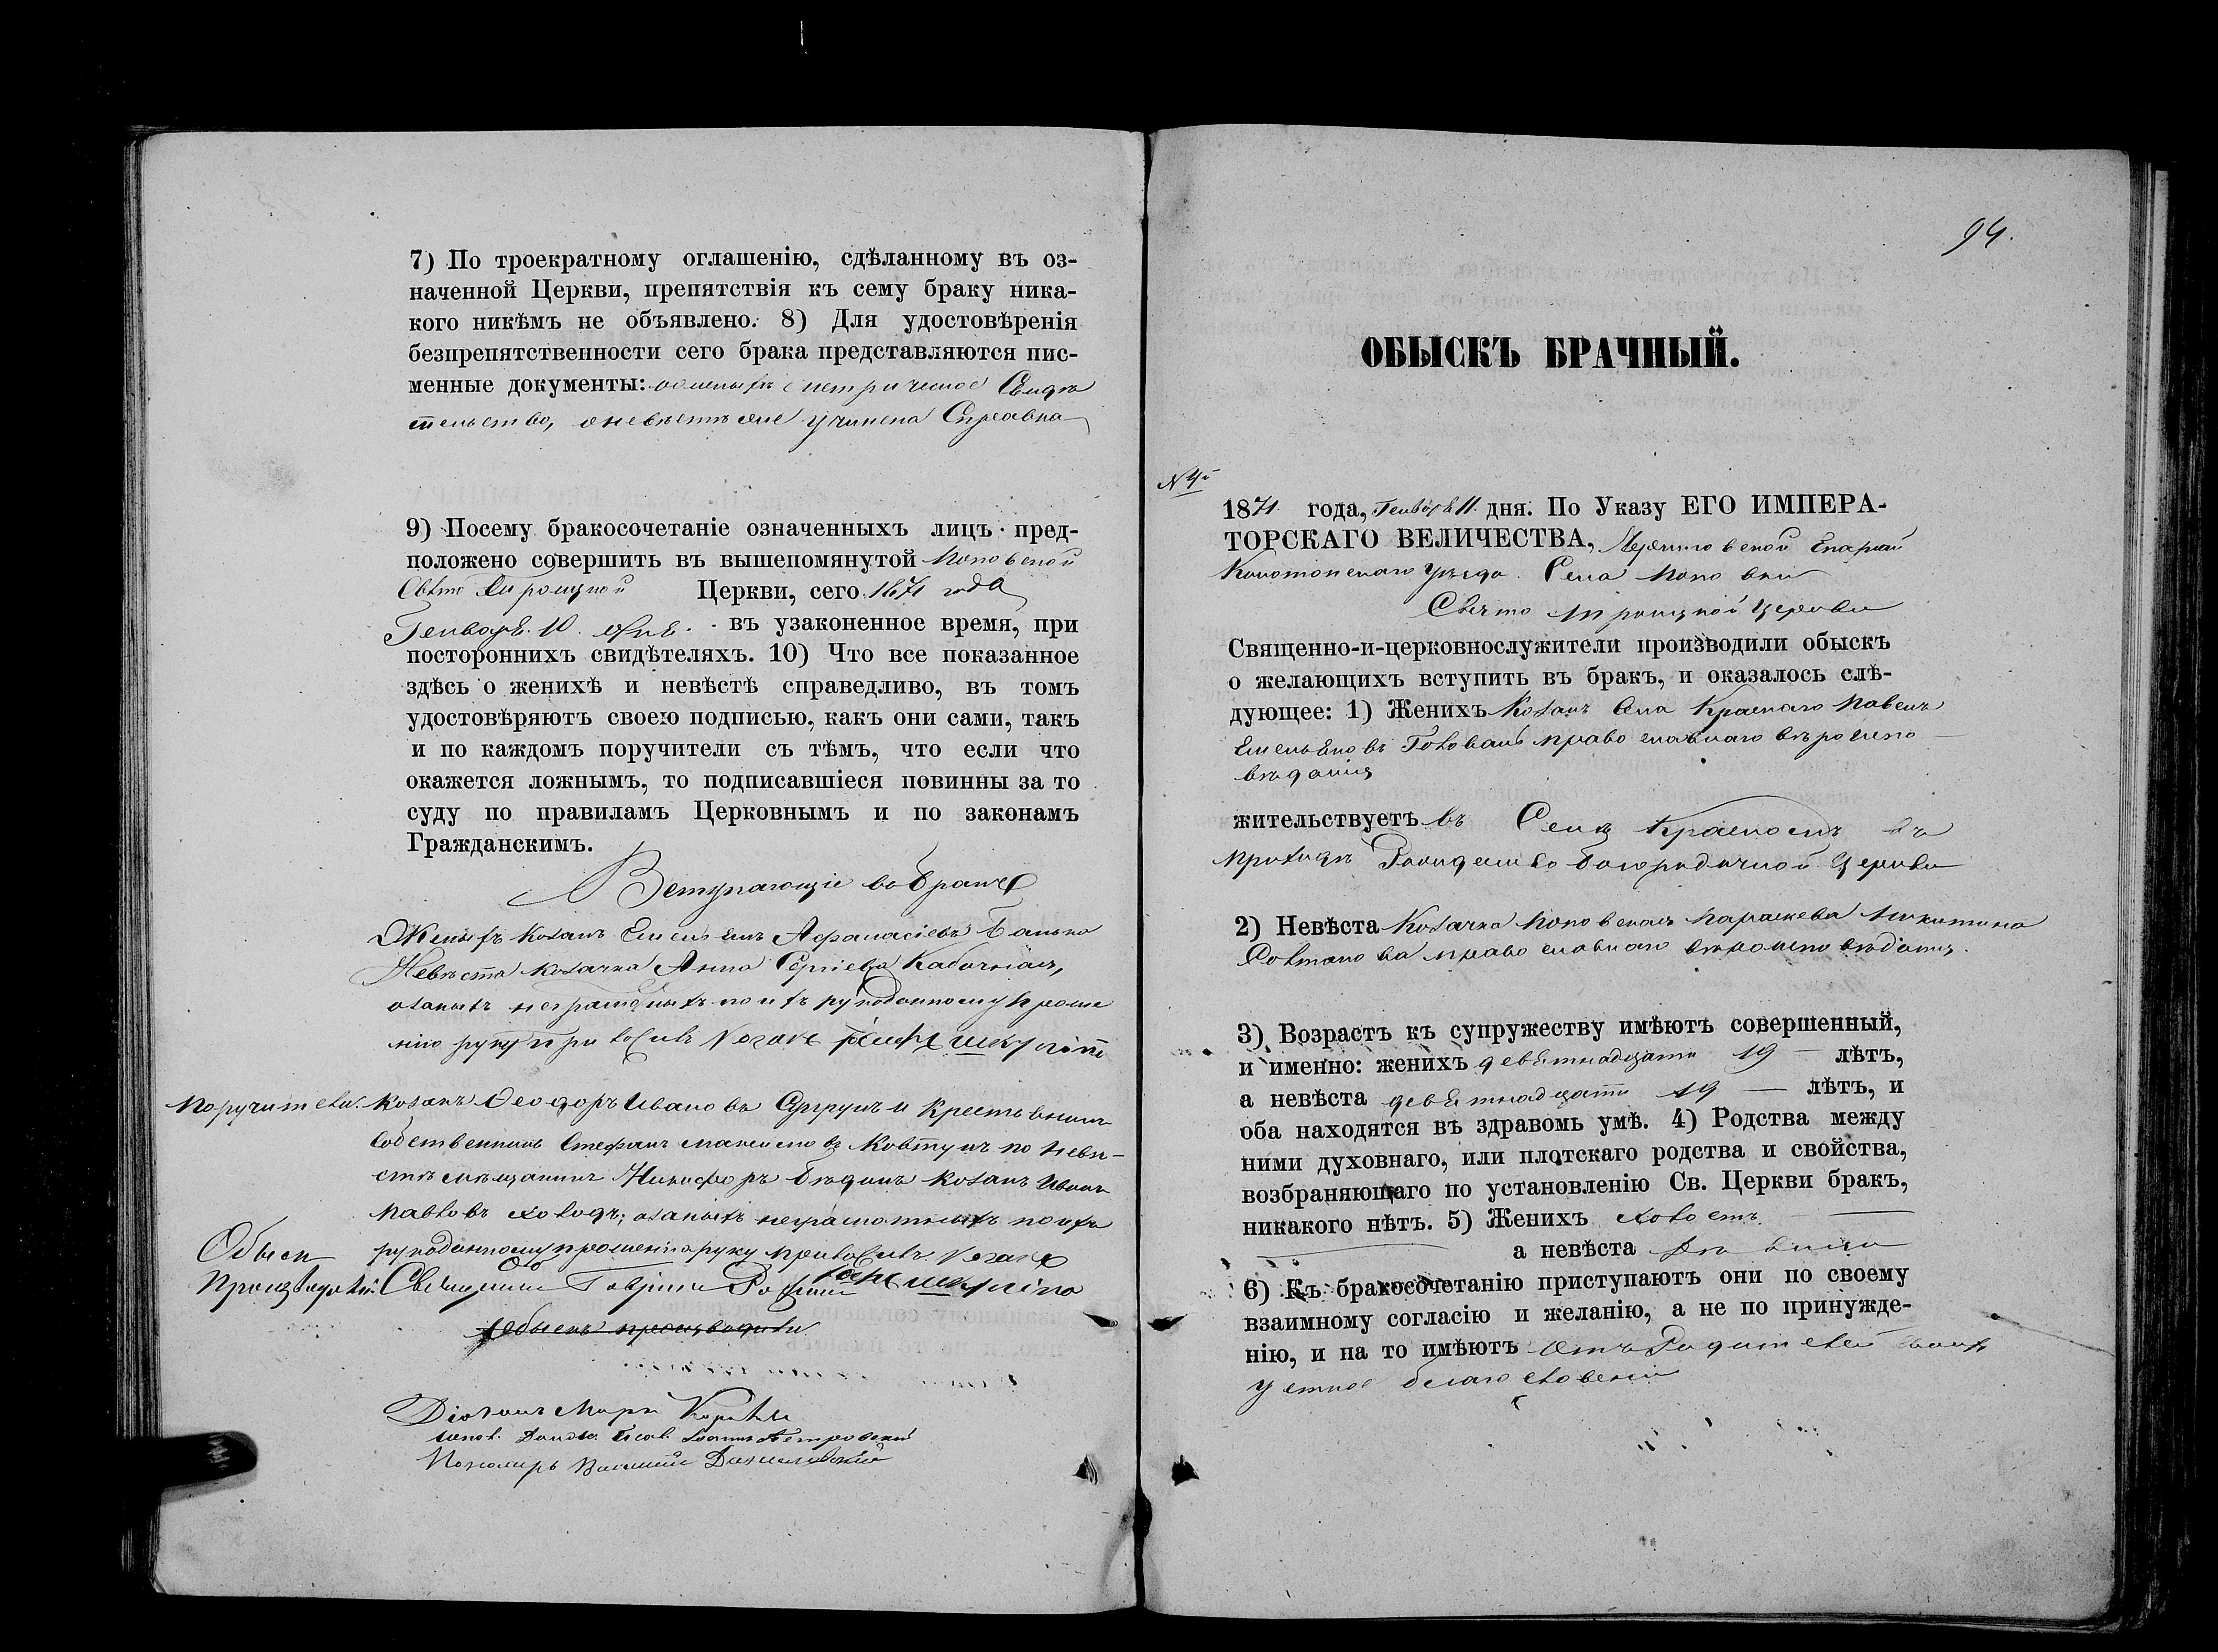 7) По троекратному оглашенію, сдѣланному въ оз-
наченной Церкви, препятствія къ сему браку ника-
кого никѣмъ не объявлено. 8) Для удостовѣренія
безпрепятственности сего брака представляются пис-
менные документы: о женихѣ метрическое Свидѣ
тельство, о невѣстѣ же учинена Справка
9) Посему бракосочетаніе означенныхъ лицъ пред-
положено совершить въ вышепомянутой Поповской
Свято Троицкой Церкви, сего 1871 года
Генваря 10 дня въ узаконенное время, при
постороннихъ свидѣтеляхъ. 10) Что все показанное
здѣсь о женихѣ и невѣстѣ справедливо, въ томъ
удостовѣряютъ своею подписью, какъ они сами, такъ
и по каждомъ поручители съ тѣмъ, что если что
окажется ложнымъ, то подписавшіеся повинны за то
суду по правиламъ Церковнымъ и по законамъ
Гражданскимъ.
Вступающіе въ бракъ
Женихъ козакъ Емельянъ Афанасіевъ
Невѣста козачка Анна Сергіева
неграмотныхъ по ихъ рукоданному проше
нію руку приложилъ козакъ
Поручители: козакъ Ѳеодоръ Ивановъ Супрунъ и Крестьянинъ
собственникъ Стефанъ Максимовъ Ковтунъ по невѣ-
стѣ мѣщанинъ Никифоръ козакъ Иванъ
Павловъ неграмотныхъ по ихъ
рукоданному прошенію руку приложилъ козакъ
Обыск
Производили: Священник
Обыскъ производили
Діаконъ Маркъ
Петровскій
Пономарь Василій Данилевскій
94.
ОБЫСКЪ БРАЧНЫЙ.
1871 года, Генваря 11 дня. По Указу ЕГО ИМПЕРА-
ТОРСКАГО ВЕЛИЧЕСТВА, Черниговской Епархіи
Конотопскаго Уѣзда Села Поповки
Свято Троицкой Церкви
Священно-и-церковнослужители производили обыскъ
о желающихъ вступить въ бракъ, и оказалось слѣ-
дующее: 1) Женихъ Козакъ Села Краснаго Павелъ
Емельяновъ православнаго вѣроиспо-
вѣданія
жительствуетъ въ Селѣ Красномъ въ
приходѣ Рождество Богородичной Церкви
2) Невѣста Козачка Поповская Параскева Никитина
православнаго вѣроисповѣданія.
3) Возрастъ къ супружеству имѣютъ совершенный,
и именно: женихъ девятнадцати 19 — лѣтъ,
а невѣста девятнадцати 19 — лѣтъ, и
оба находятся въ здравомъ умѣ. 4) Родства между
ними духовнаго, или плотскаго родства и свойства,
возбраняющаго по установленію Св. Церкви бракъ,
никакого нѣтъ. 5) Женихъ холостъ
а невѣста дѣвица
6) Къ бракосочетанію приступаютъ они по своему
взаимному согласію и желанію, а не по принужде-
нію, и на то имѣютъ отъ Родителей своихъ
устное благословеніе